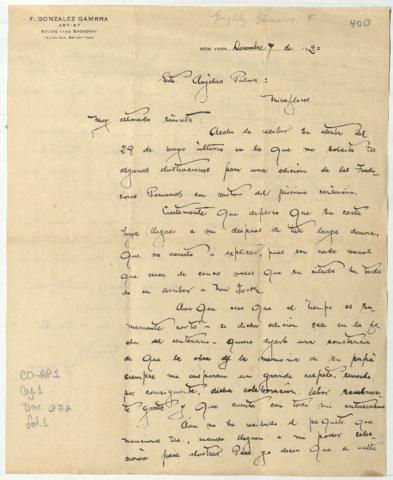 F. GONZALEZ GAMRRA
ARTIST
STUDIO 1140 BROADWAY
Gonzalez Gamarra, F.
400
NEW YORK, Diciembre 7 de 1920
Srta. Angélica Palma:
Miraflores
Muy estimada señorita
Acabo de recibir su atenta del
29 de mayo último en la que me solicita Ud
algunas ilustraciones para una edición de las Tradi
ciones Peruanas con motivo del próximo centenario.
Ciertamente que deploro que su carta
haya llegado a mi despues de tan larga demora,
que no acierto a explicar, pues son nada menos
que cerca de cinco meses que su citada ha tardado
en su arribar a New York.
Aun que creo que el tiempo es su-
mamente corto – si dicha edición sale en la fe
cha del centenario – quiero dejarle una constancia
de que la obra y la memoria de su papá
siempre me inspiraron un grande respeto, siendo
por consiguiente, dicha colaboración, labor
grata y que cuenta con todo mi entusiasmo
Aun no he recibido el paquete que
menciona Ud, cuando lleguen a mi poder
para ilustrar. Pero yo deseo que a vuelta
CO-AP1
Caj.1
Doc. 377
fol.1